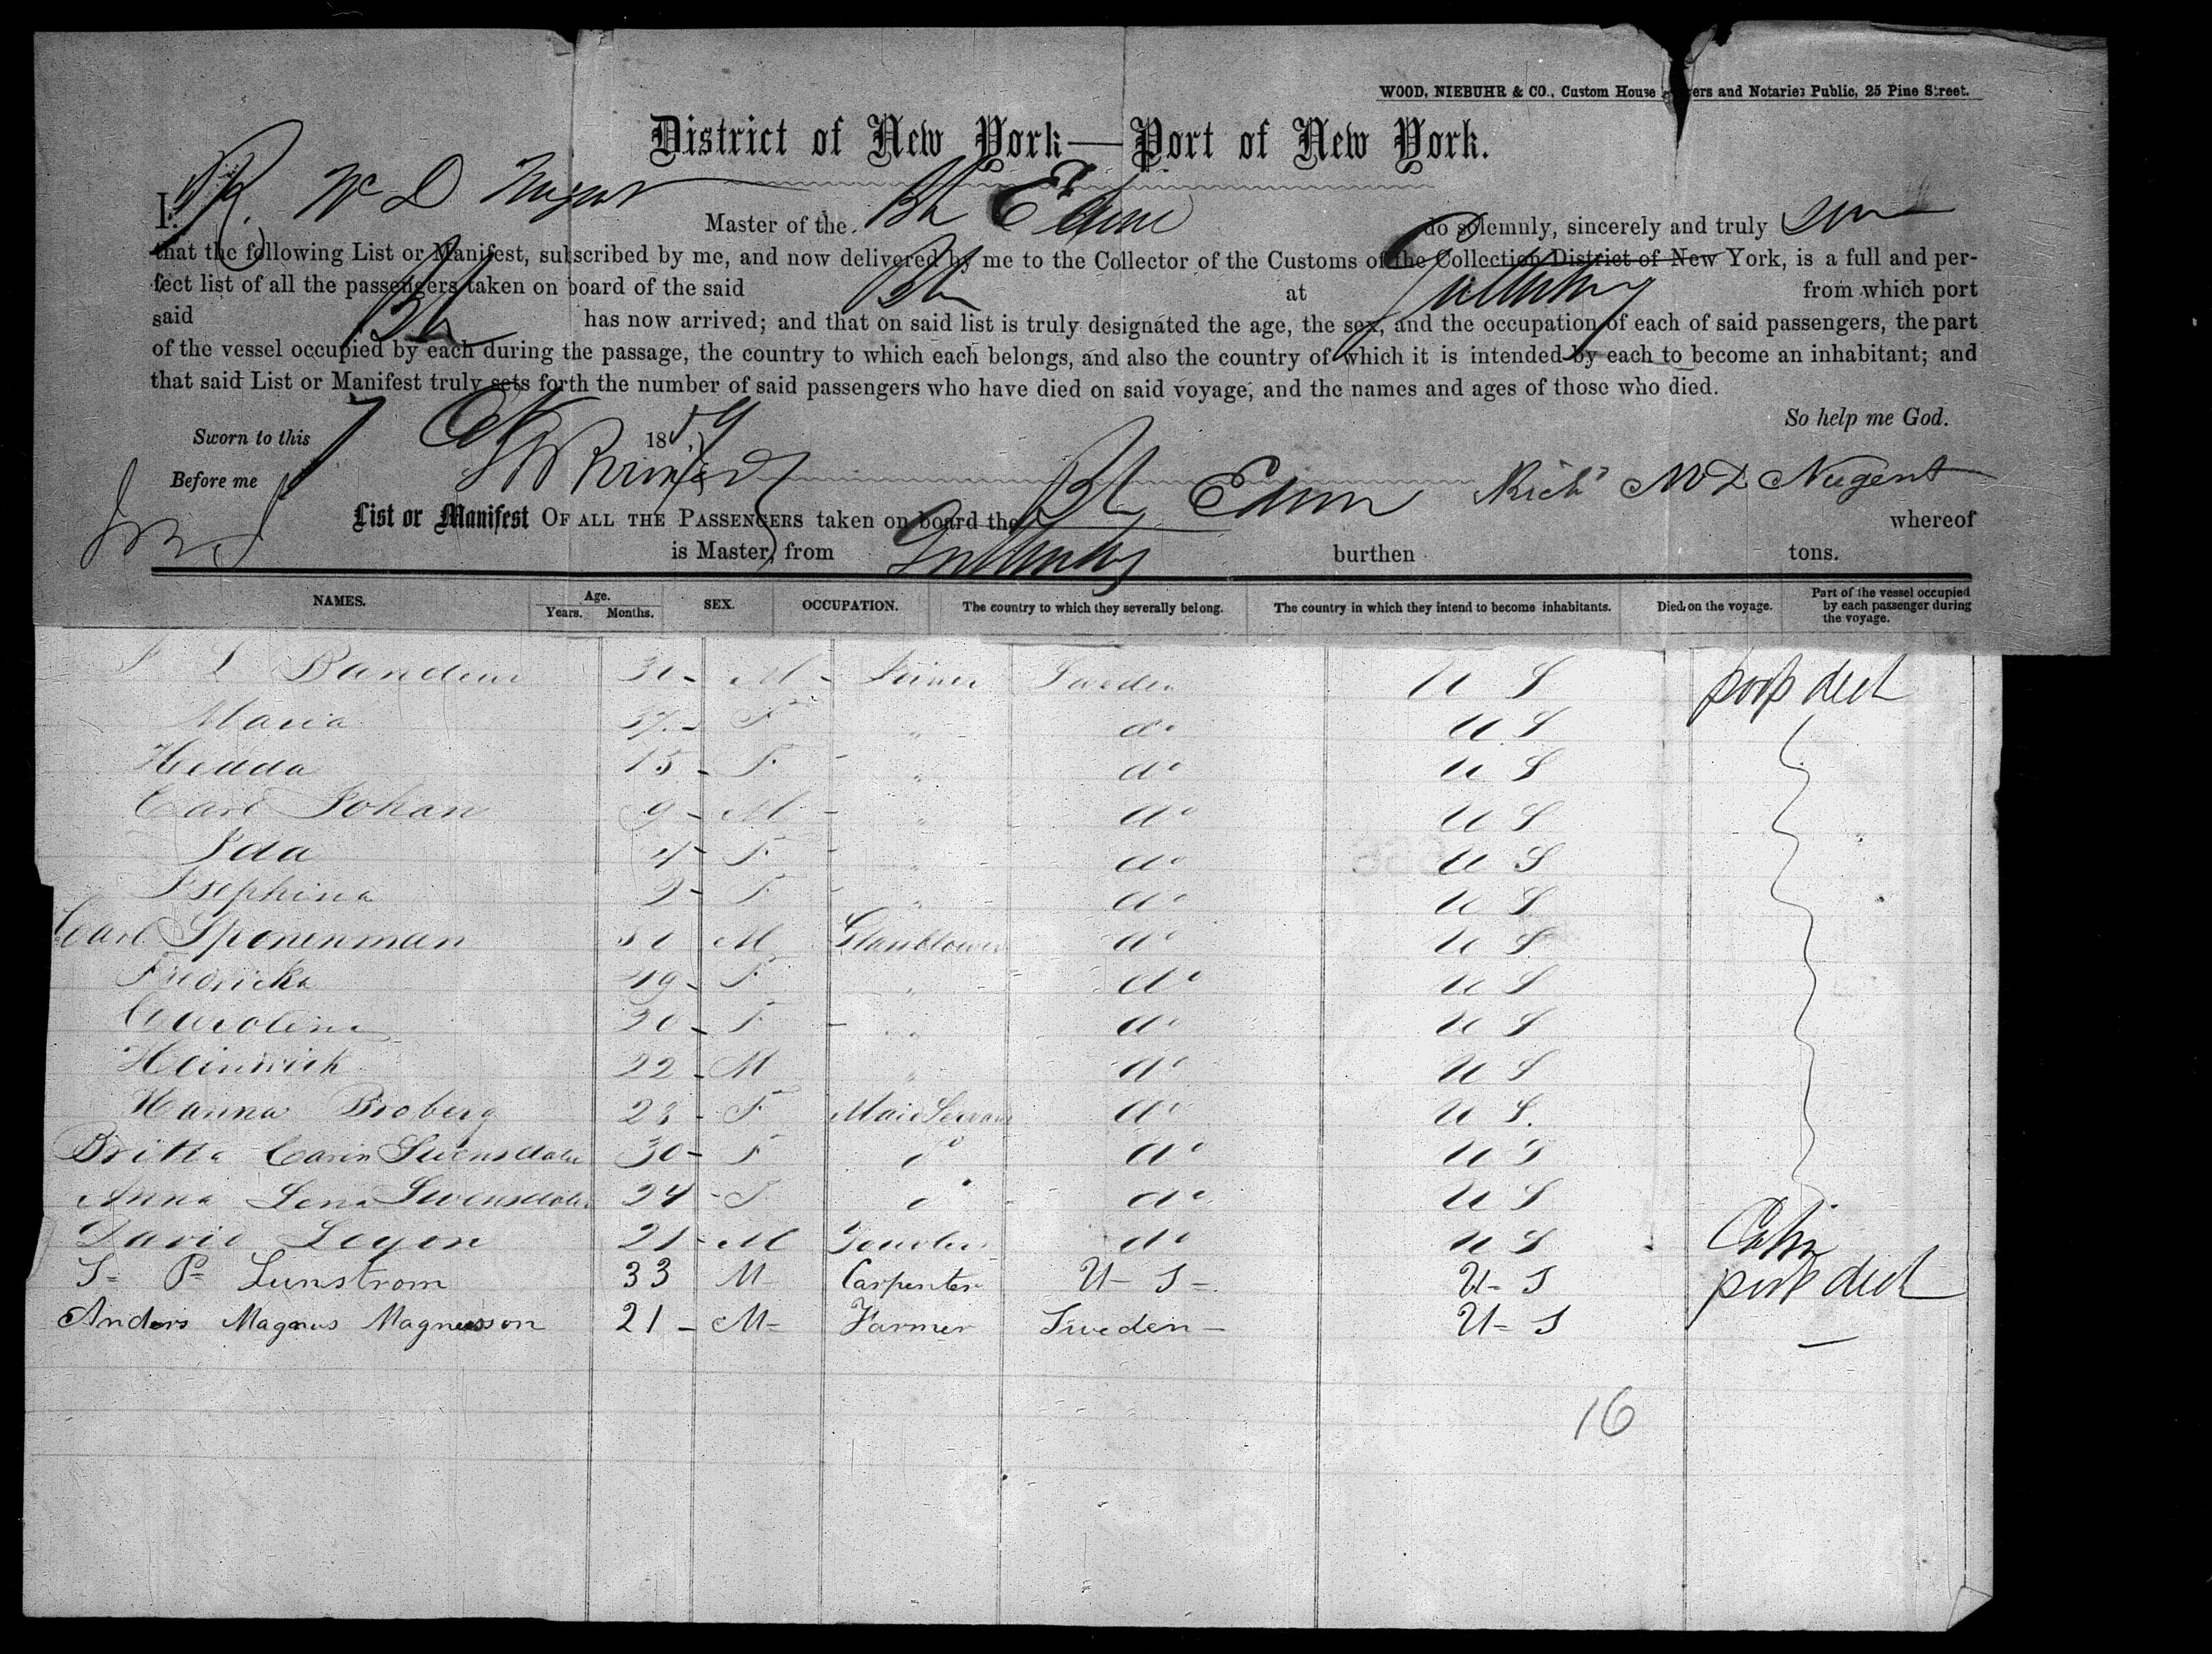 WOOD, NIEBUHR & CO., Custom House ers and Notaries Public, 25 Pine Street.
District of New York—Port of New York.
I, Master of the Bk do solemnly, sincerely and truly
that the following List or Manifest, subscribed by me, and now delivered by me to the Collector of the Customs of the Collection District of New York, is a full and per-
fect list of all the passengers taken on board of the said Bk at from which port
said Bk has now arrived; and that on said list is truly designated the age, the sex, and the occupation of each of said passengers, the part
of the vessel occupied by each during the passage, the country to which each belongs, and also the country of which it is intended by each to become an inhabitant; and
that said List or Manifest truly sets forth the number of said passengers who have died on said voyage, and the names and ages of those who died.
So help me God.
Sworn to this 7 Oct 1859
Before me
Rich McD Nugent
List or Manifest OF ALL THE PASSENGERS taken on board the Bk whereof
is Master, from burthen tons.
NAMES. Age. Years. Months. SEX. OCCUPATION. The country to which they severally belong. The country in which they intend to become inhabitants. Died on the voyage. Part of the vessel occupied by each passenger during the voyage.
L M Sweden U S poop deck
Maria 37 - F " do U S
Hedda 15 - F - " do U S
Carl Johan 9 - M - " do U S
Ida 4 - F - " do U S
Josephina F - " do U S
Carl Sponenman M Glassblower do U S
Fredricka 49 - F " do U S
Caroline 20 - F - " do U S
Heinrich 22 - M " do U S
Hanna Broberg 23 - F Maid Servant do U S.
Britta Carin 30 - F do do U S
Anna Lena 24 - F do do U S
David 21 - M do U S Cabin
S= P= Lunstrom 33 M- Carpenter U- S- U- S poop deck
Anders Magnus Magnusson 21 - M- Farmer Sweden- U- S
16